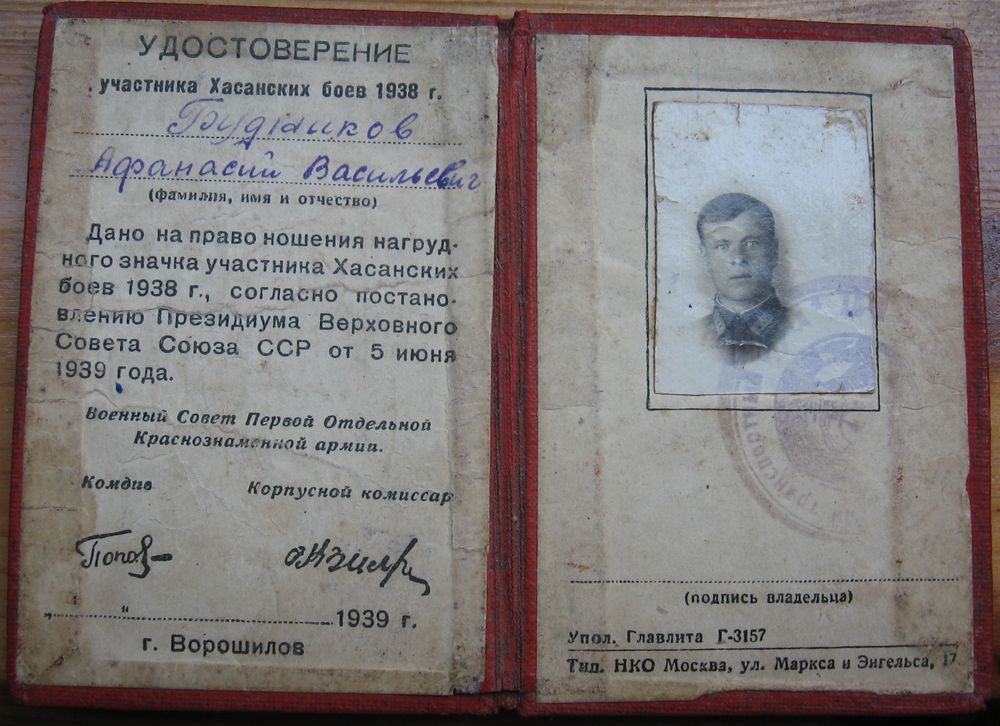 УДОСТОВЕРЕНИЕ
участника Хасанских боев 1938 г.
Будников
Афанасий Васильевич
(фамилия, имя и отчество)
Дано на право ношения нагруд-
ного значка участника Хасанских
боев 1938 г., согласно постано-
влению Президиума Верховного
Совета Союза ССР от 5 июня
1939 года.
Военный Совет Первой Отдельной
Краснознаменной армии.
Комдив Корпусной комиссар
Попов
„ “ 1939 г.
г. Ворошилов
(подпись владельца)
Упол. Главлита Г-3157
Тип. НКО Москва, ул. Маркса и Энгельса, 17